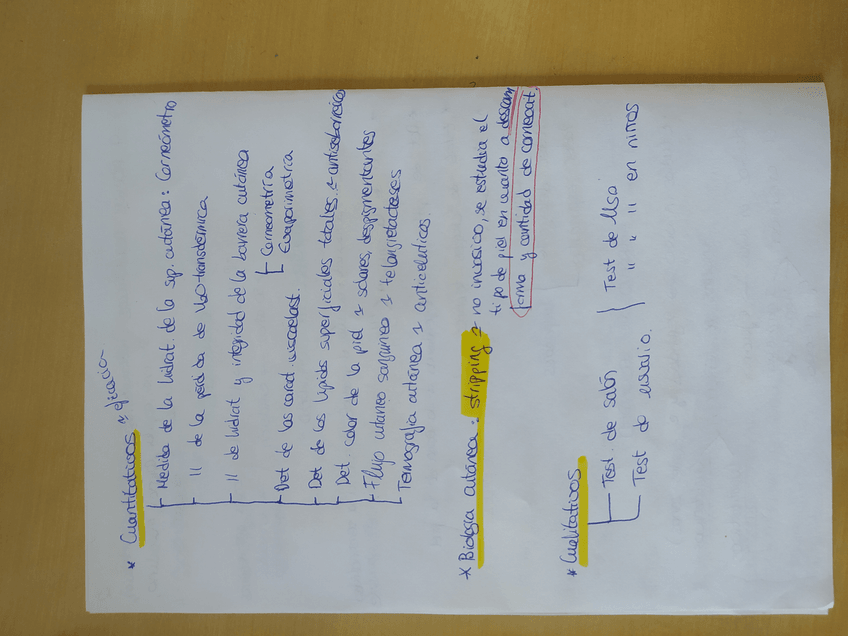 * Cuantitativos ~ eficacia
Medida de la hidrat. de la sup. cutánea: Corneómetro
11 de la pérdida de H2O transdérmica
11 de hidrat y integridad de la barrera cutánea
Det de las caract. viscoelast. Corneometría
Evaporimetría
Det de los lípidos superficiales totales ~ antiseborreicos
Det. color de la piel ~ solares, despigmentantes
Flujo cutáneo sanguíneo ~ telangiectasias
Termografía cutánea ~ anticelulíticos
* Biología cutánea: stripping ~ no invasivo, se estudia el
tipo de piel en cuanto a descam
forma y cantidad de corneocit.
* Cualitativos
Test de sabón Test de Uso
Test de usuario. " " 11 en niños